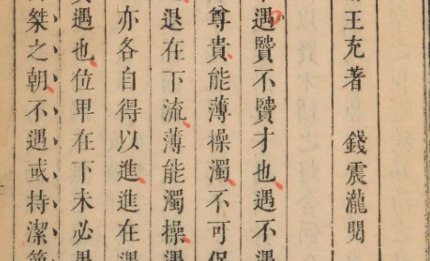 王充著 錢震瀧閱
遇賢不賢才也遇不遇
尊貴能薄操濁不可保
退在下流薄能濁操遇
亦各自得以進進在遇
遇也位卑在下未必愚
桀之朝不遇或持潔